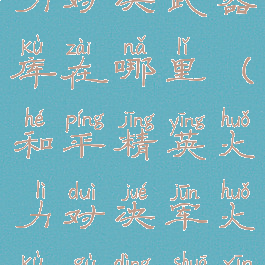 力对决武器
kù zài nǎ lǐ
库在哪里（
hé píng jīng yīng huǒ
和平精英火
lì duì jué jūn huǒ
力对决军火